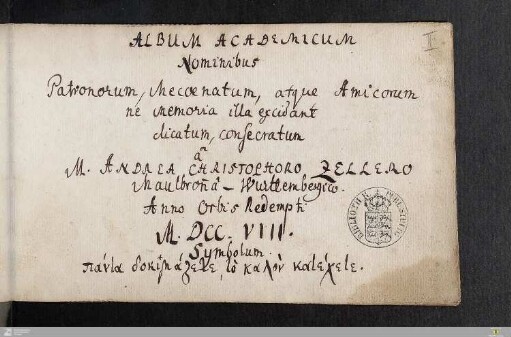 ALBUM ACADEMICUM
II
Nominibus
Patronorum, Mecoenatum, atque Amicorum
ne memoria illa excidant
dicatum, consecratum
a
M. ANDREA CHRISTOPHORO ZELLERO
Maulbroñâ-Wurtembergico.
Anno Orbis Redempti
M. DCC. VIII.
Symbolum
πάντα δοκιμάζετε, τὸ καλὸν κατέχετε.